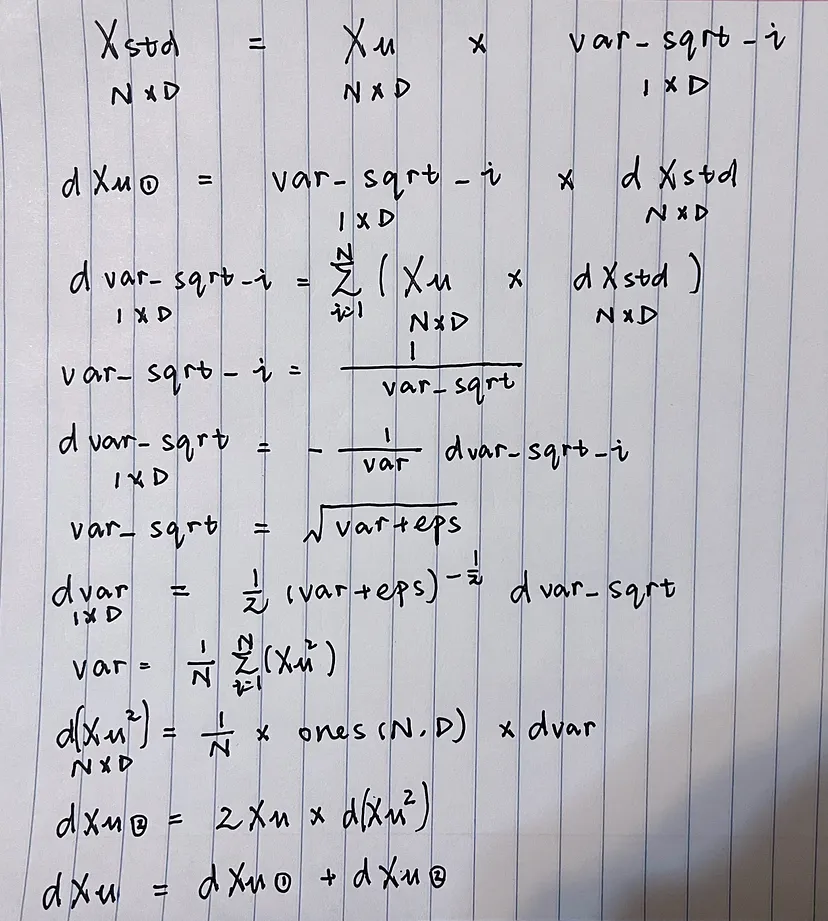 Xstd = Xu × var_sqrt_i
N×D N×D 1×D
dXu① = var_sqrt_i × dXstd
1×D N×D
dvar_sqrt_i = Σ_{i=1}^{N} (Xu × dXstd)
1×D N×D N×D
var_sqrt_i = 1/var_sqrt
dvar_sqrt = - 1/var dvar_sqrt_i
1×D
var_sqrt = √(var+eps)
dvar = 1/2 (var+eps)^{-1/2} dvar_sqrt
1×D
var = 1/N Σ_{i=1}^{N} (Xu²)
d(Xu²) = 1/N × ones(N.D) × dvar
N×D
dXu② = 2Xu × d(Xu²)
dXu = dXu① + dXu②